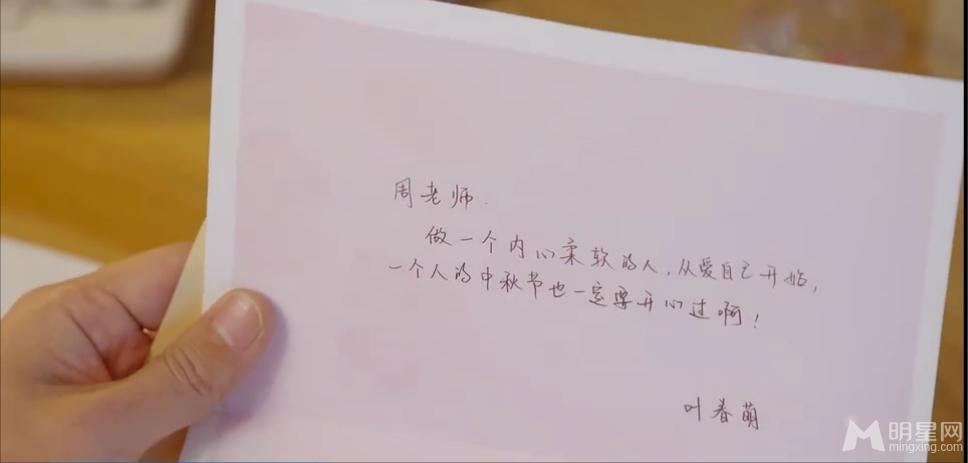 周老师
做一个内心柔软的人，从爱自己开始，
一个人的中秋节也一定要开心过啊！
叶春萌
明星网
mingxing.com